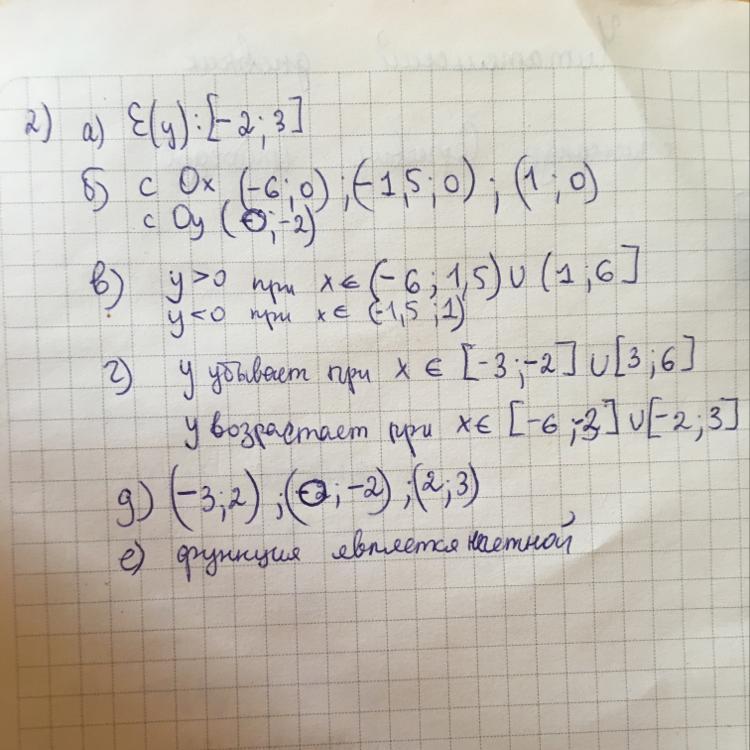 2) а) E(y):[-2;3]
б) с Ox (-6;0);(-1,5;0);(1;0)
с Oy (0;-2)
в) y>0 при x∈(-6;1,5)∪(1;6]
y<0 при x∈(-1,5;1)
г) y убывает при x∈[-3;-2]∪[3;6]
y возрастает при x∈[-6;-3]∪[-2;3]
д) (-3;2);(;-2);(2;3)
е) функция является